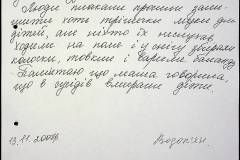 Люди плакали просили зали-
шити хоть трішечки муки для
дітей, але ніхто їх не слухав,
ходили на поле і у снігу збирали
колоски, товкли і варили баланду.
Памятаю що мама говорила,
що в сусідів вмирали діти.
13.11.2008р.